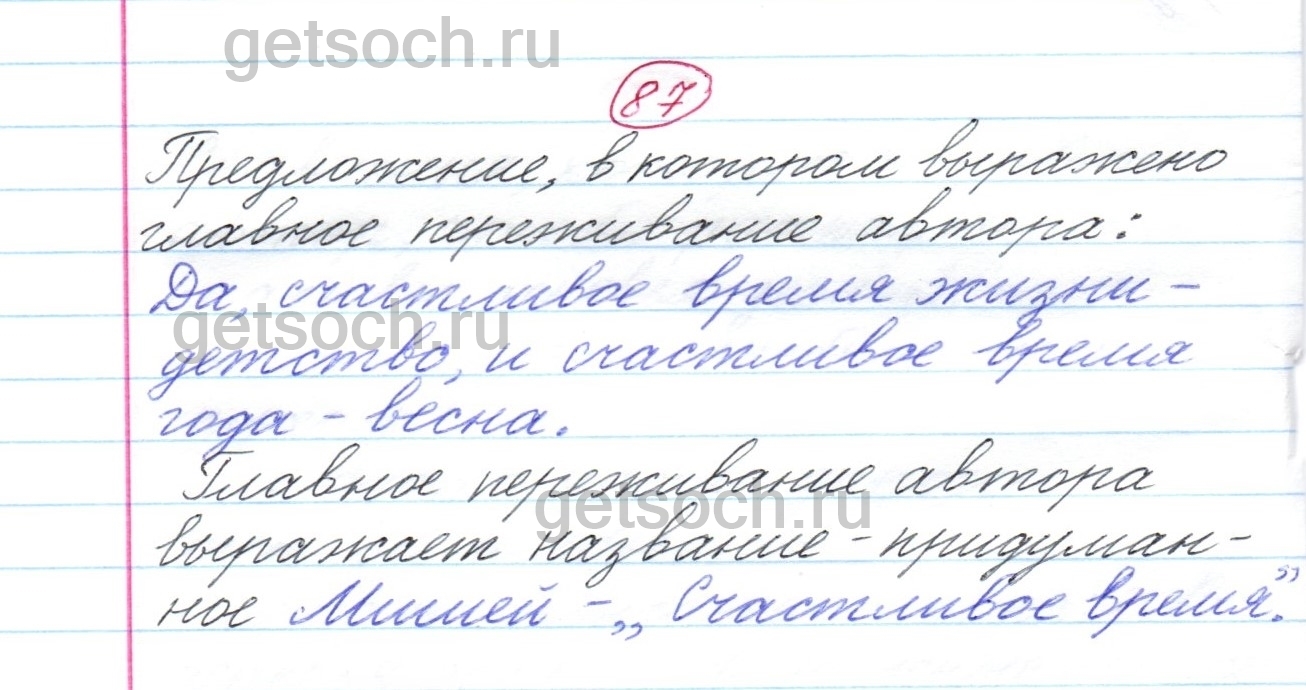 getsoch.ru
87
Предложение, в котором выражено
главное переживание автора:
Да, счастливое время жизни –
getsoch.ru
детство, и счастливое время
года – весна.
Главное переживание автора
getsoch.ru
выражает название – придуман-
ное Мишей – „Счастливое время”.